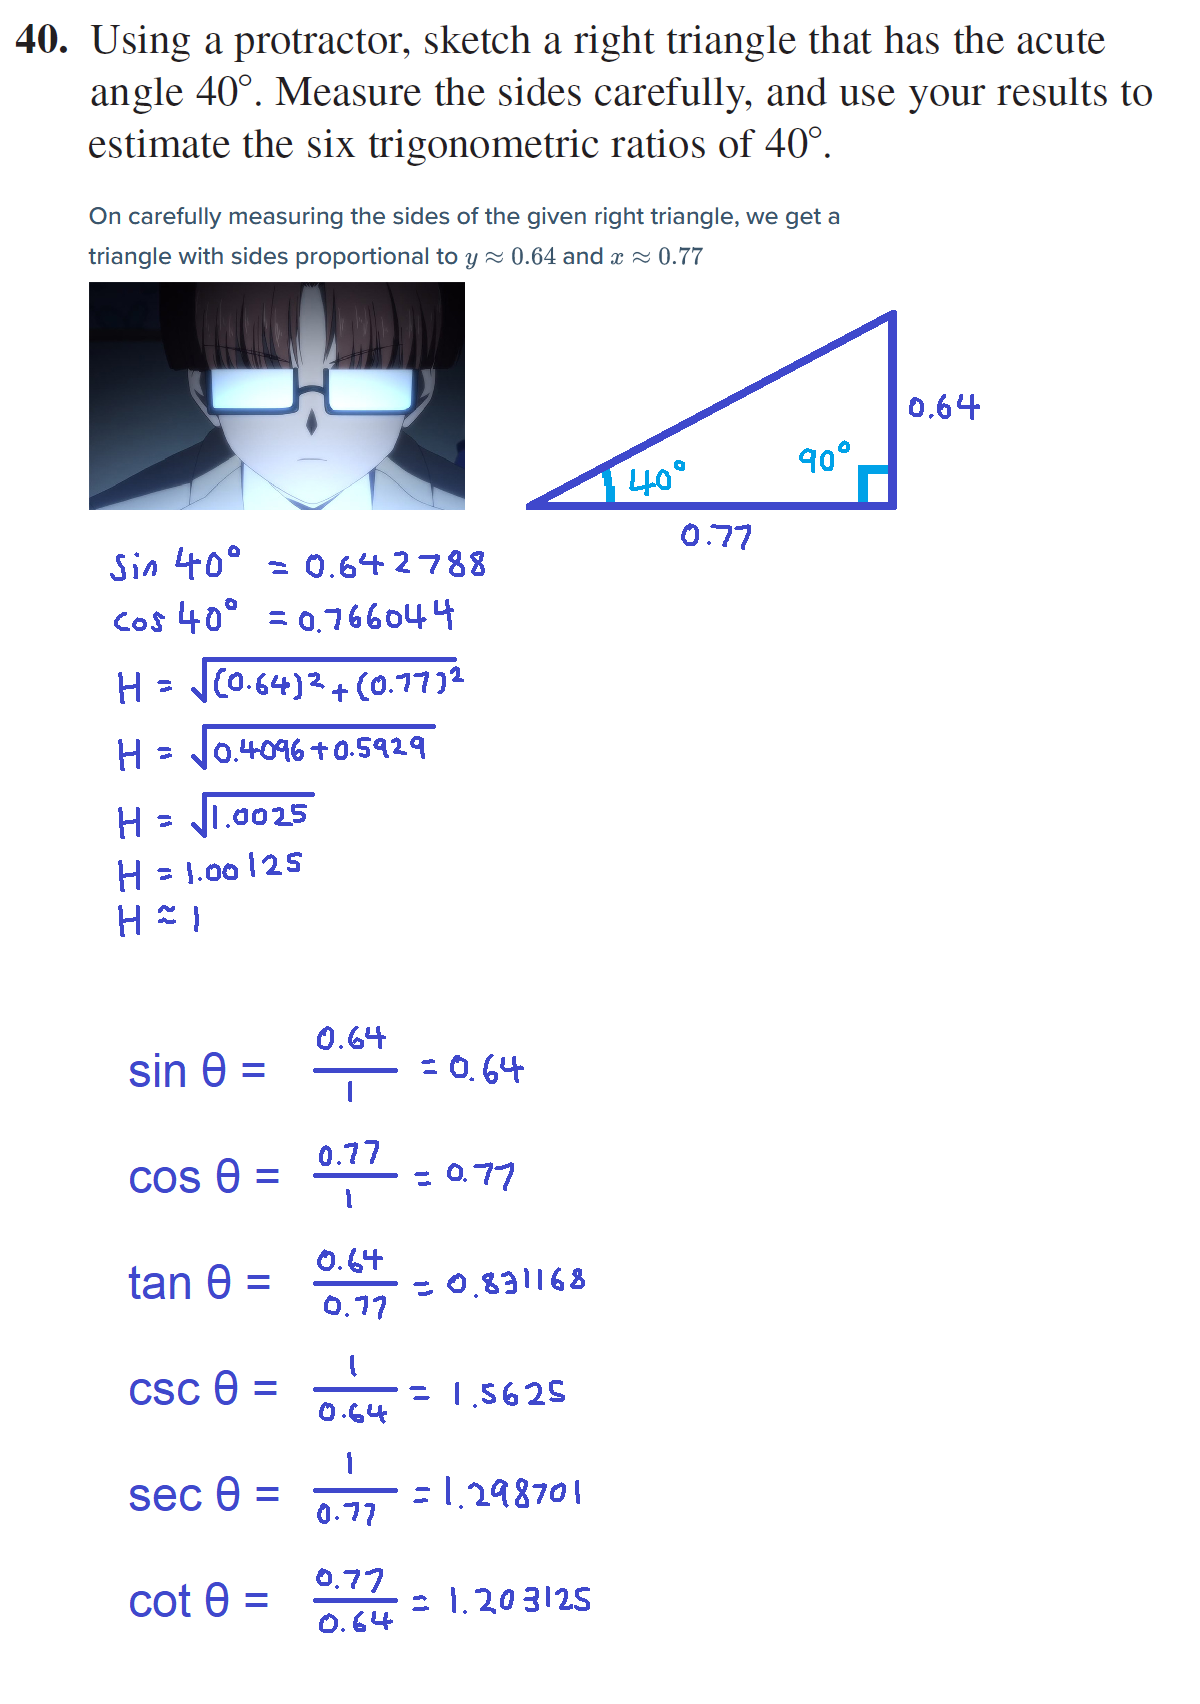 40. Using a protractor, sketch a right triangle that has the acute
angle 40°. Measure the sides carefully, and use your results to
estimate the six trigonometric ratios of 40°.
On carefully measuring the sides of the given right triangle, we get a
triangle with sides proportional to y ≈ 0.64 and x ≈ 0.77
0.64
90°
40°
0.77
sin 40° = 0.642788
cos 40° = 0.766044
H = √(0.64)² + (0.77)²
H = √0.4096 + 0.5929
H = √1.0025
H = 1.00125
H ≈ 1
sin θ = 0.64/1 = 0.64
cos θ = 0.77/1 = 0.77
tan θ = 0.64/0.77 = 0.831168
csc θ = 1/0.64 = 1.5625
sec θ = 1/0.77 = 1.298701
cot θ = 0.77/0.64 = 1.203125